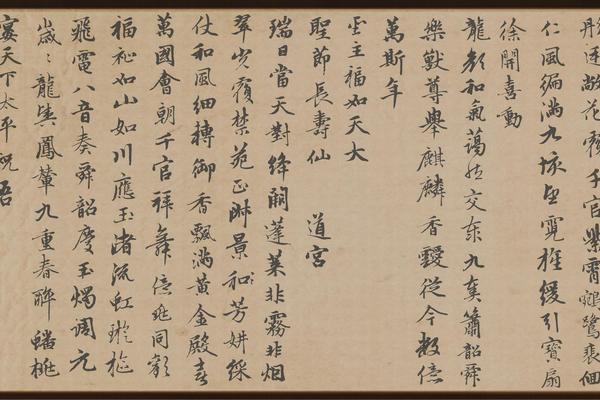 敞花霧千官紫霄鵷鷺裵佪
仁風徧滿九垓望霓旌緩引寶扇
徐開喜動
龍顏和氣藹然交泰九奏簫韶舜
樂獸尊舉麒麟香靉從今數億
萬斯年
聖主福如天大
聖節長壽仙　道宮
瑞日當天對絳闕蓬萊非霧非烟
翠光覆禁苑正淑景和芳妍綵
仗和風細轉御香飄滿黃金殿喜
萬國會朝千官拜舞億兆同歡
福祉如山如川應玉渚流虹璇樞
飛電八音奏舜韶慶玉燭調元
歲〻龍輿鳳輦九重春醉蟠桃
宴天下太平祝吾